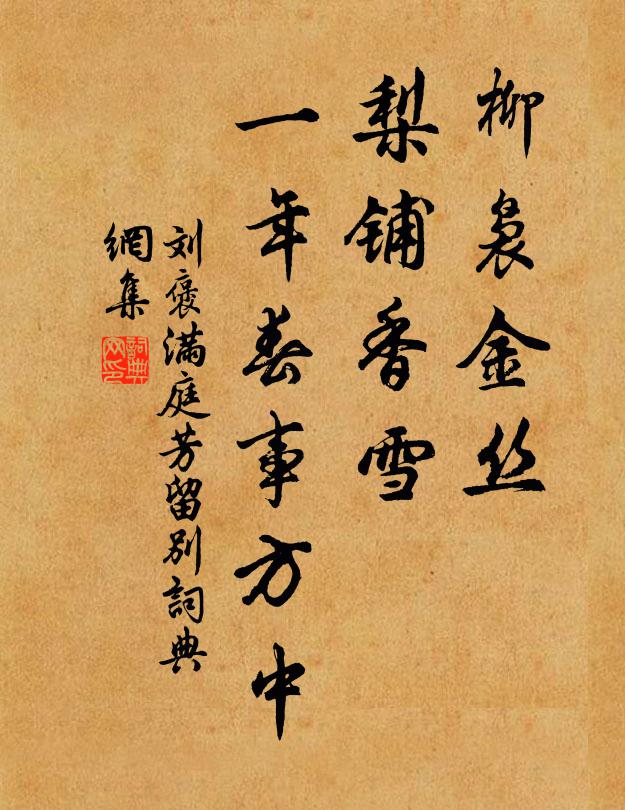 柳袅金丝
梨铺香雪
一年春事方中
刘褒满庭芳留别词典
網集
詞典
网印